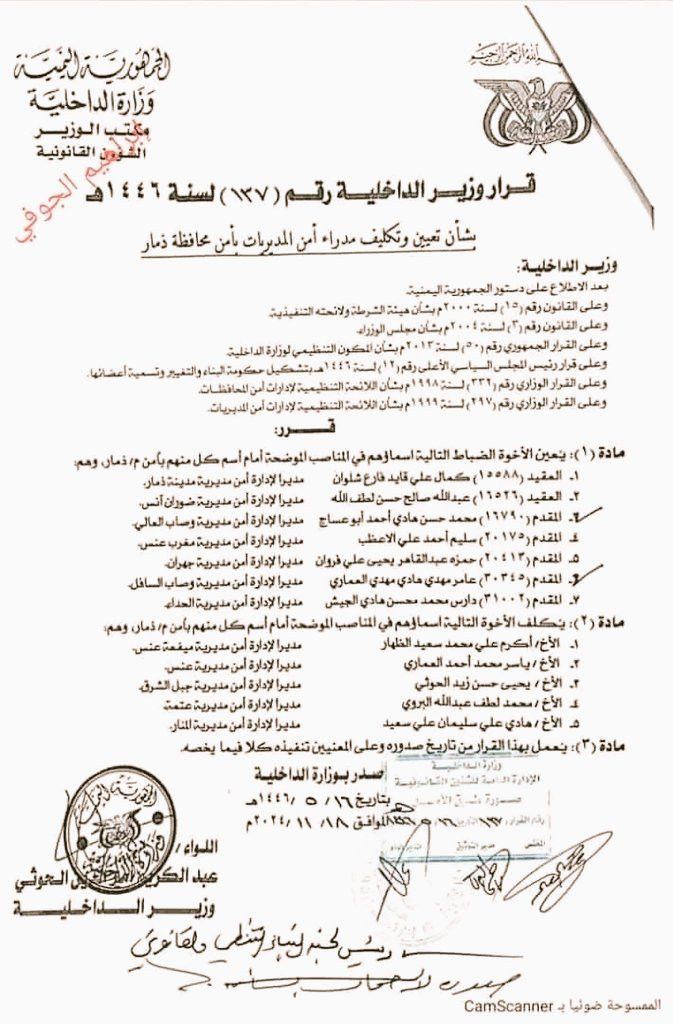 بسم الله الرحمن الرحيم
الجمهورية اليمنية
وزارة الداخلية
مكتب الوزير
الشئون القانونية
ابراهيم الجوفي
قرار وزير الداخلية رقم (١٣٧) لسنة ١٤٤٦هـ
بشأن تعيين وتكليف مدراء أمن المديريات بأمن محافظة ذمار
وزير الداخلية:
بعد الاطلاع على دستور الجمهورية اليمنية.
وعلى القانون رقم (١٥) لسنة ٢٠٠٠م بشأن هيئة الشرطة ولائحته التنفيذية.
وعلى القانون رقم (٣) لسنة ٢٠٠٤م بشأن مجلس الوزراء.
وعلى القرار الجمهوري رقم (٥٠) لسنة ٢٠١٣م بشأن المكون التنظيمي لوزارة الداخلية.
وعلى قرار رئيس المجلس السياسي الأعلى رقم (١٢) لسنة ١٤٤٦هـ بتشكيل حكومة البناء والتغيير وتسمية أعضائها.
وعلى القرار الوزاري رقم (٣٣٢) لسنة ١٩٩٨م بشأن اللائحة التنظيمية لإدارات أمن المحافظات.
وعلى القرار الوزاري رقم (٢٩٧) لسنة ١٩٩٩م بشأن اللائحة التنظيمية لإدارات أمن المديريات.
قــرر:
مادة (١): يُعين الأخوة الضباط التالية اسماؤهم في المناصب الموضحة أمام أسم كل منهم بأمن م/ ذمار، وهم:
١. العقيد (١٥٥٨٨) كمال علي قايد فارع شلوان مديرا لإدارة أمن مديرية مدينة ذمار.
٢. العقيد (١٦٥٢٦) عبدالله صالح حسن لطف الله مديرا لإدارة أمن مديرية ضوران آنس.
٣. المقدم (١٦٧٩٠) محمد حسن هادي أحمد أبو عساج مديرا لإدارة أمن مديرية وصاب العالي.
٤. المقدم (٢٠١٧٥) سليم أحمد علي الاعظب مديرا لإدارة أمن مديرية مغرب عنس.
٥. المقدم (٢٠٤١٣) حمزه عبدالقاهر يحيى علي فروان مديرا لإدارة أمن مديرية جهران.
٦. المقدم (٣٠٣٤٥) عامر مهدي هادي مهدي العماري مديرا لإدارة أمن مديرية وصاب السافل.
٧. المقدم (٣١٠٠٢) دارس محمد محسن هادي الجيش مديرا لإدارة أمن مديرية الحداء.
مادة (٢): يُكلف الأخوة التالية اسماؤهم في المناصب الموضحة أمام أسم كل منهم بأمن م/ ذمار، وهم:
١. الأخ/ أكرم علي محمد سعيد الظهار مديرا لإدارة أمن مديرية ميفعة عنس.
٢. الأخ/ ياسر محمد أحمد العماري مديرا لإدارة أمن مديرية عنس.
٣. الأخ/ يحيى حسن زيد الحوثي مديرا لإدارة أمن مديرية جبل الشرق.
٤. الأخ/ محمد لطف عبدالله البروي مديرا لإدارة أمن مديرية عتمة.
٥. الأخ/ هادي علي سليمان علي سعيد مديرا لإدارة أمن مديرية المنار.
مادة (٣): يُعمل بهذا القرار من تاريخ صدوره وعلى المعنيين تنفيذه كلا فيما يخصه.
صدر بوزارة الداخلية
بتاريخ ١٦/ ٥ /١٤٤٦هـ
الموافق ١٨/ ١١ /٢٠٢٤م
وزارة الداخلية
الإدارة العامة للشئون القانونية
صورة طبق الأصل
اللواء/
عبد الكريم الحوثي
وزير الداخلية
الممسوحة ضوئيا بـ CamScanner